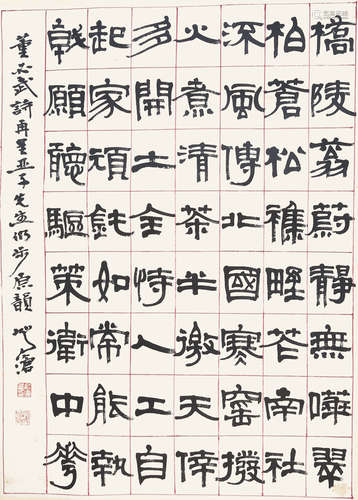 橋陵蓊蔚靜無嘩翠
柏蒼松襍野花南社
深風傳北國寒窑撥
火煮清茶半邀天倖
多開土全恃人工自
起家頑鈍如常能執
戟願聽驅策衛中華
董必武詩再呈亞子先生仍步原韻